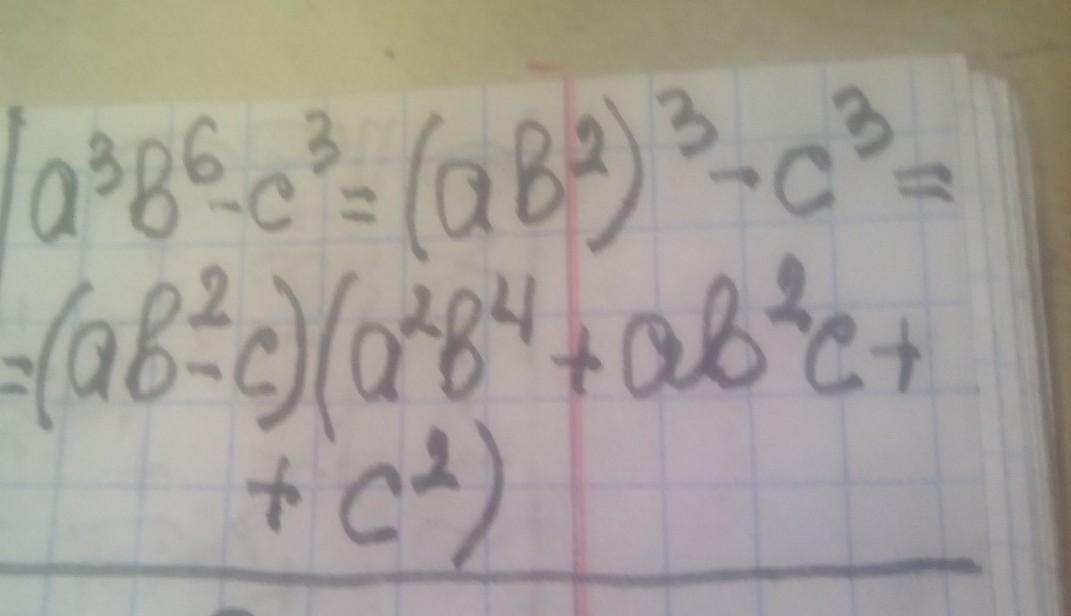 a³b⁶-c³=(ab²)³-c³=
=(ab²-c)(a²b⁴+ab²c+
+c²)